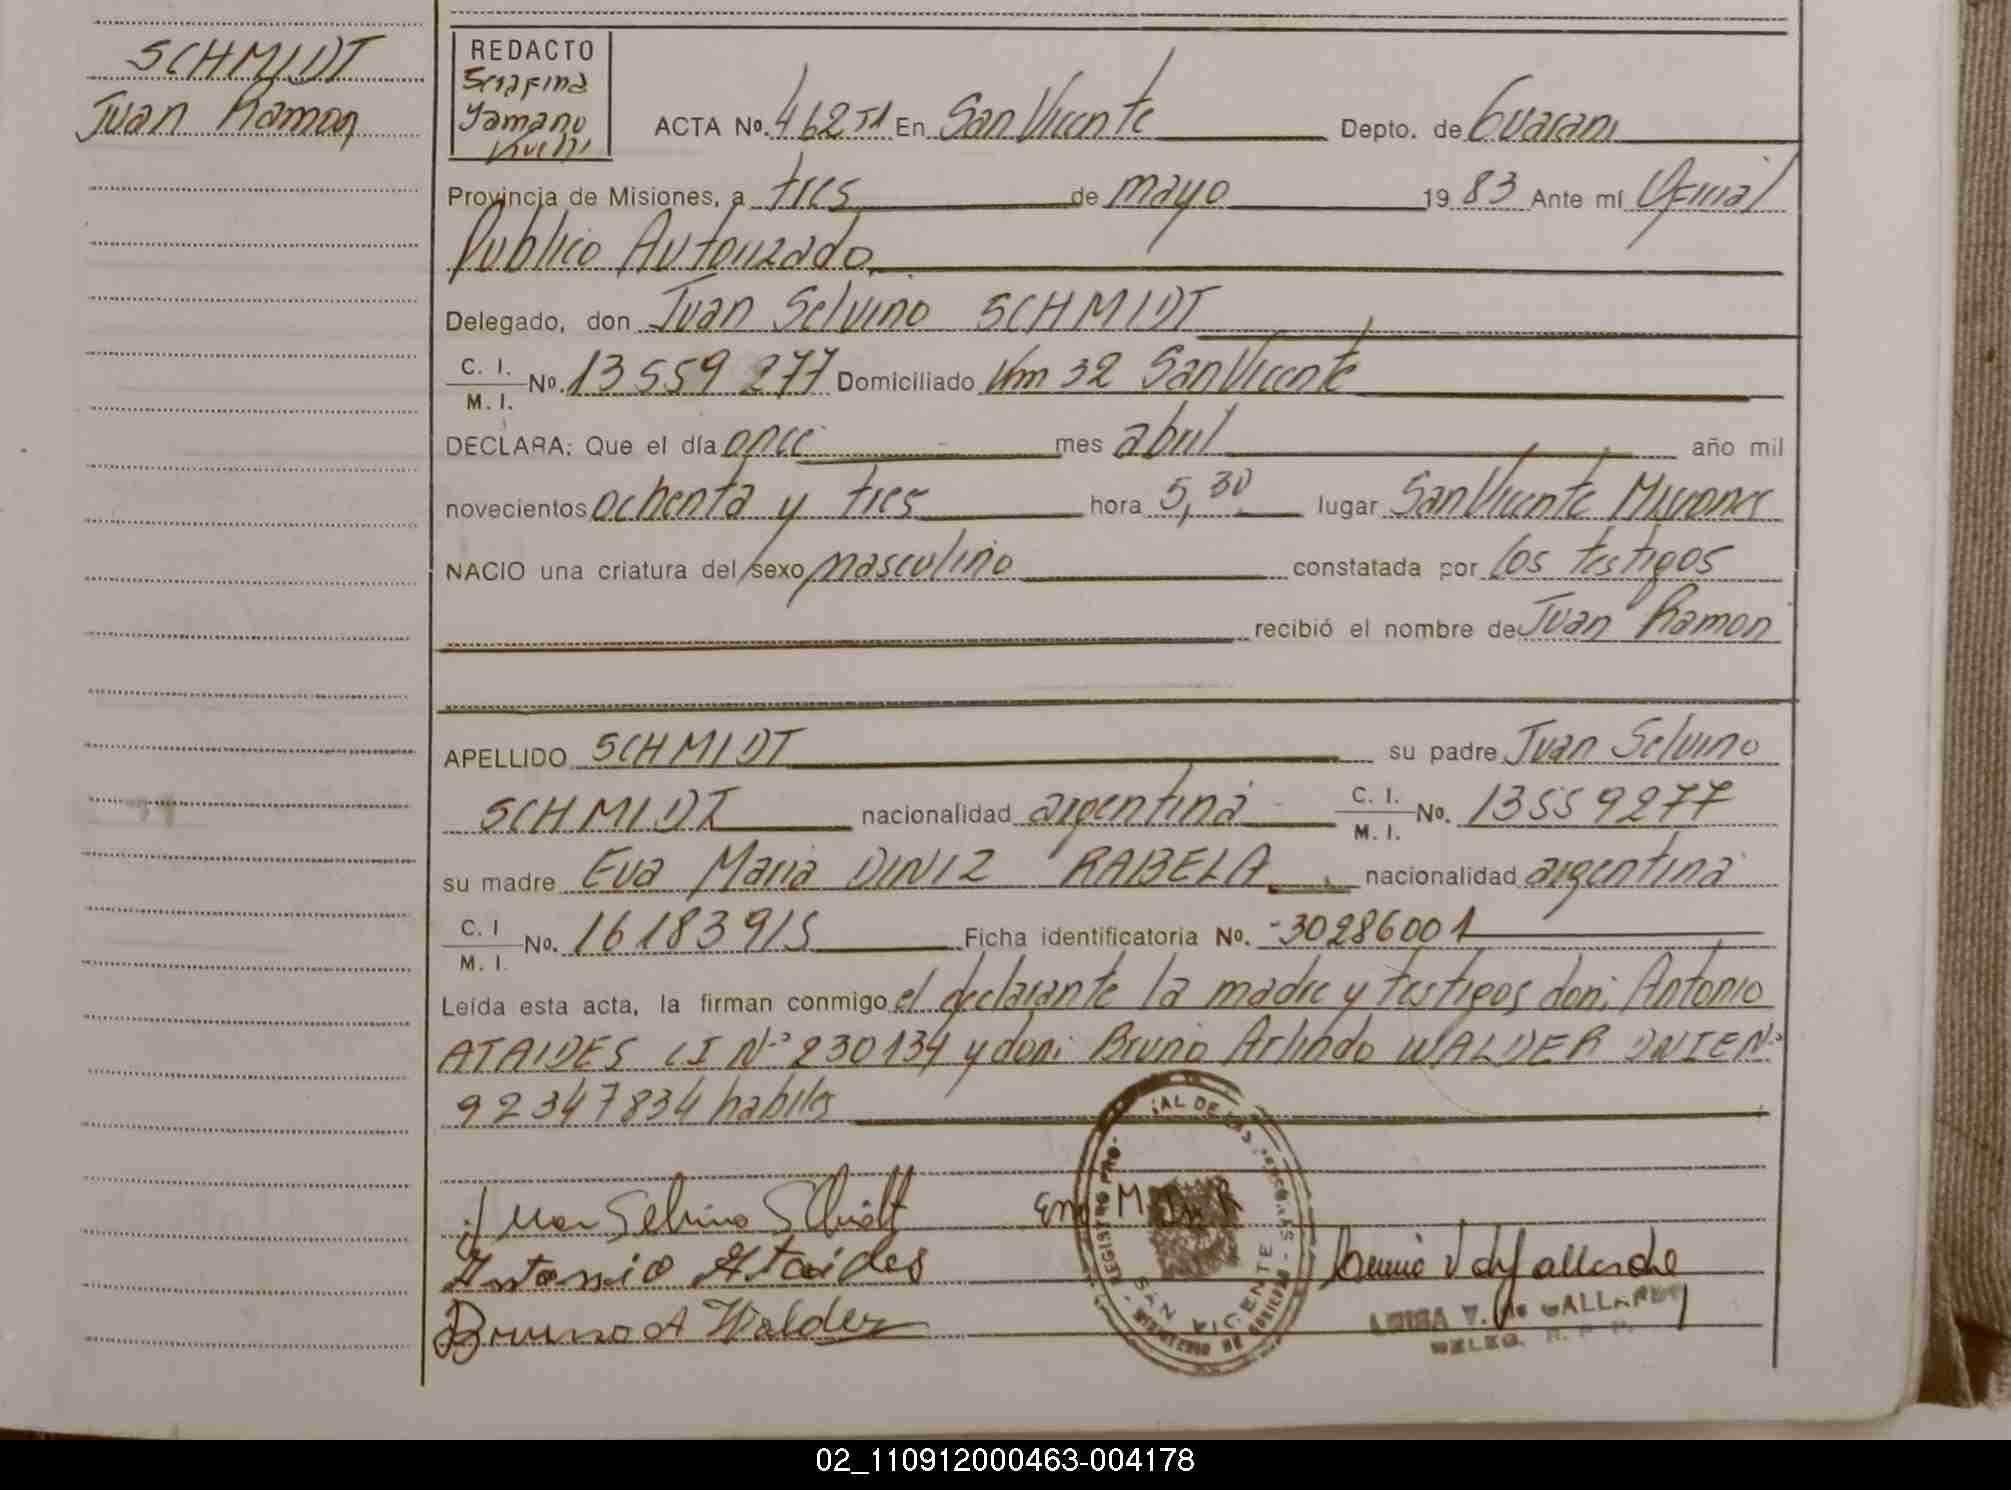 SCHMIDT
Juan Ramon
REDACTO
Serafina
Yamano
ACTA No. 462 T1 En San Vicente Depto. de Guarani
Provincia de Misiones, a tres de mayo 19 83 Ante mí Oficial
Publico Autorizado
Delegado, don Juan Selvino SCHMIDT
C. I. M. I. No. 13 559 277 Domiciliado Km 32 San Vicente
DECLARA: Que el día once mes abril año mil
novecientos ochenta y tres hora 5,30 lugar San Vicente Misiones
NACIO una criatura del sexo masculino constatada por los testigos
recibió el nombre de Juan Ramon
APELLIDO SCHMIDT su padre Juan Selvino
SCHMIDT nacionalidad argentina C. I. M. I. No. 13559277
su madre Eva Maria DINIZ RABELA nacionalidad argentina
C. I M. I. No. 16183915 Ficha identificatoria No. -30286001
Leída esta acta, la firman conmigo el declarante la madre y testigos don: Antonio
ATAIDES CI Nº 230134 y don: Bruno Arlindo WALDER DNIE Nº
92347834 habiles
Juan Selvino Schidt
Antonio Ataides
Bruno A Walder
REGISTRO PROVINCIAL DE LAS PERSONAS
SAN VICENTE
LUISA V. de GALLARDO
DELEG. R. P. P.
02_110912000463-004178